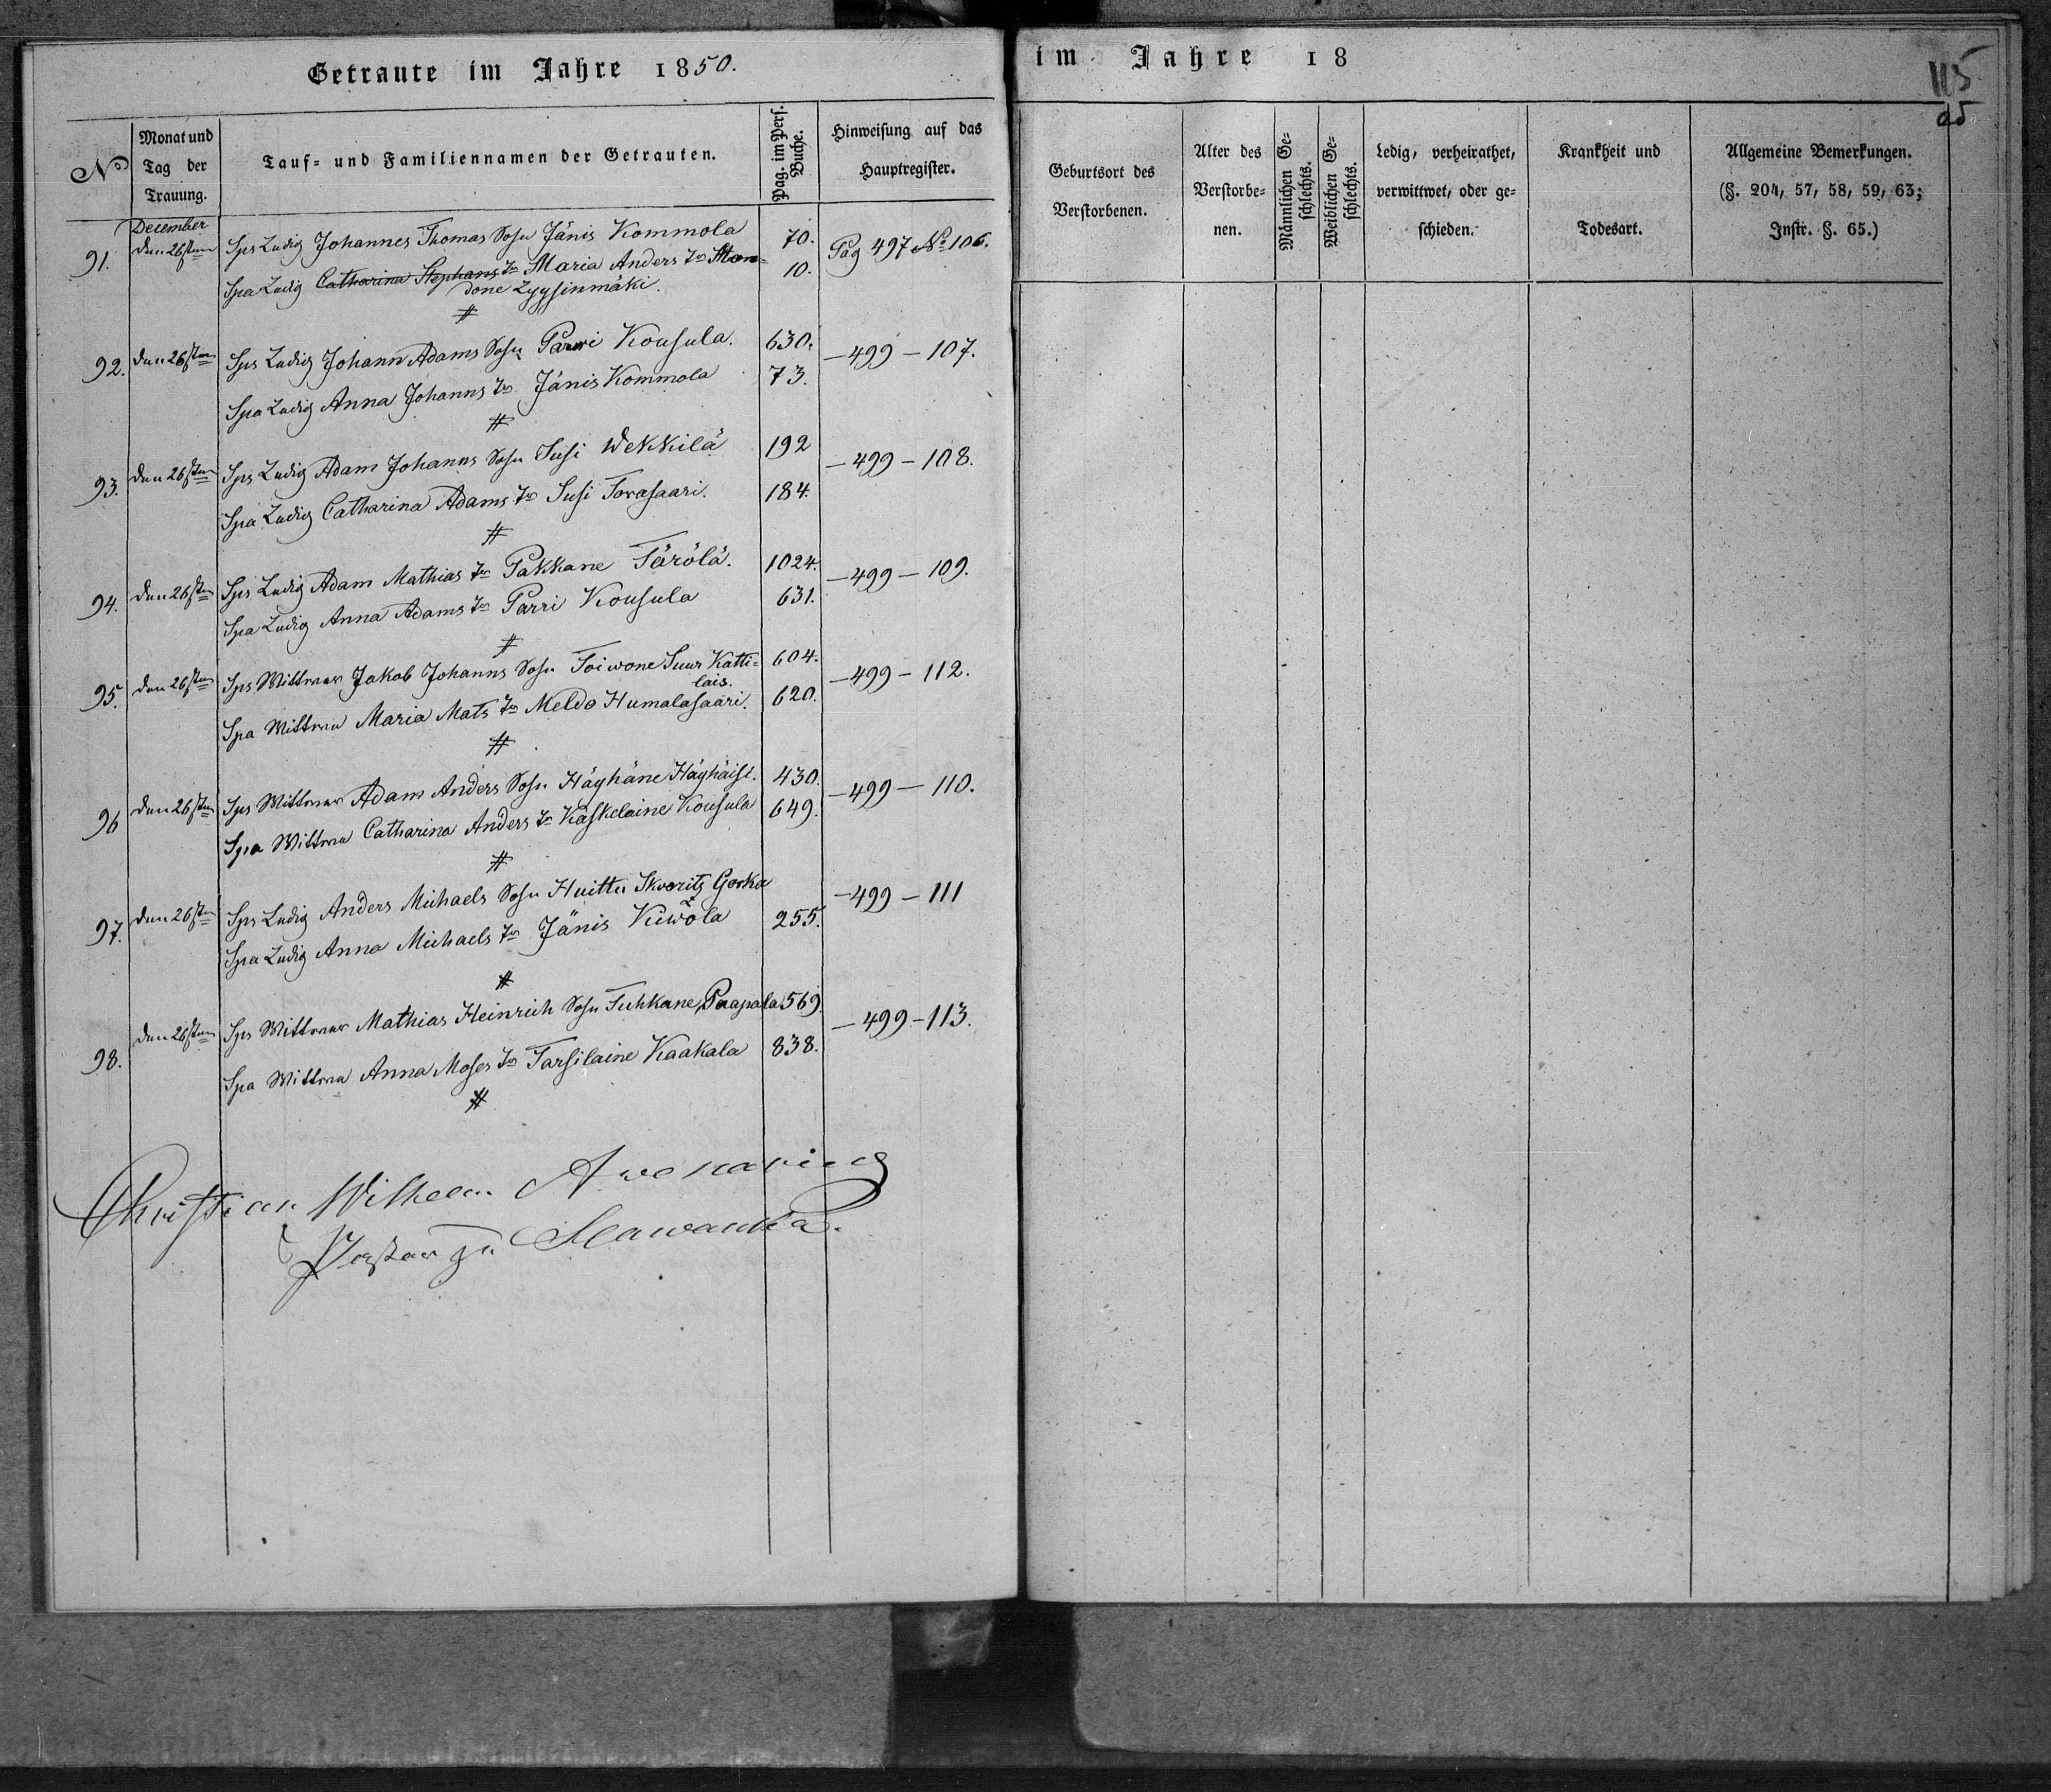 Getraute im Jahre 1850.
No Monat und Tag der Trauung. Tauf- und Familiennamen der Getrauten. Pag. im Pers. Buche. Hinweisung auf das Hauptregister.
December
91. den 26sten Sps Ledig Johannes Thomas Sohn Jänis Kommola 70. Pag 497 No 106.
Spa Ledig Catharina Stephans Tr Maria Anders Tr Mon= 10.
done Lyysinmäki.
92. den 26sten Sps Ledig Johann Adams Sohn Parri Kousula. 630. — 499 — 107.
Spa Ledig Anna Johanns Tr Jänis Kommola 73.
93. den 26sten Sps Ledig Adam Johanns Sohn Susi Wekkilä 192 — 499 — 108.
Spa Ledig Catharina Adams Tr Susi Torasaari. 184.
94. den 26sten Sps Ledig Adam Mathias Tr Pakkane Tärölä. 1024. — 499 — 109.
Spa Ledig Anna Adams Tr Parri Kousula 631.
95. den 26sten Sps Wittwer Jakob Johanns Sohn Toiwone Suur Katti= 604. — 499 — 112.
lais.
Spa Wittwe Maria Mats Tr Meldo Humalasaari. 620.
96 den 26sten Sps Wittwer Adam Anders Sohn Häyhäne Häyhäisi. 430. — 499 — 110.
Spa Wittwe Catharina Anders Tr Kaskelaine Kousula 649.
97. den 26sten Sps Ledig Anders Michaels Sohn Huittu Skworitz Gorka — 499 — 111
Spa Ledig Anna Michaels Tr Jänis Kiwola 255.
98. den 26sten Sps Wittwer Mathias Heinrich Sohn Tuhkane, Paapala 569. — 499 — 113.
Spa Wittwe Anna Moses Tr Tarsilaine Kaakala 838.
Christian Wilhelm Avenarius
Pastor zu Slawanka.
im Jahre 18
115
Geburtsort des Verstorbenen. Alter des Verstorbe=nen. Männlichen Ge=schlechts. Weiblichen Ge=schlechts. Ledig, verheirathet, verwittwet, oder ge=schieden. Krankheit und Todesart. Allgemeine Bemerkungen. (§. 204, 57, 58, 59, 63; Instr. §. 65.)